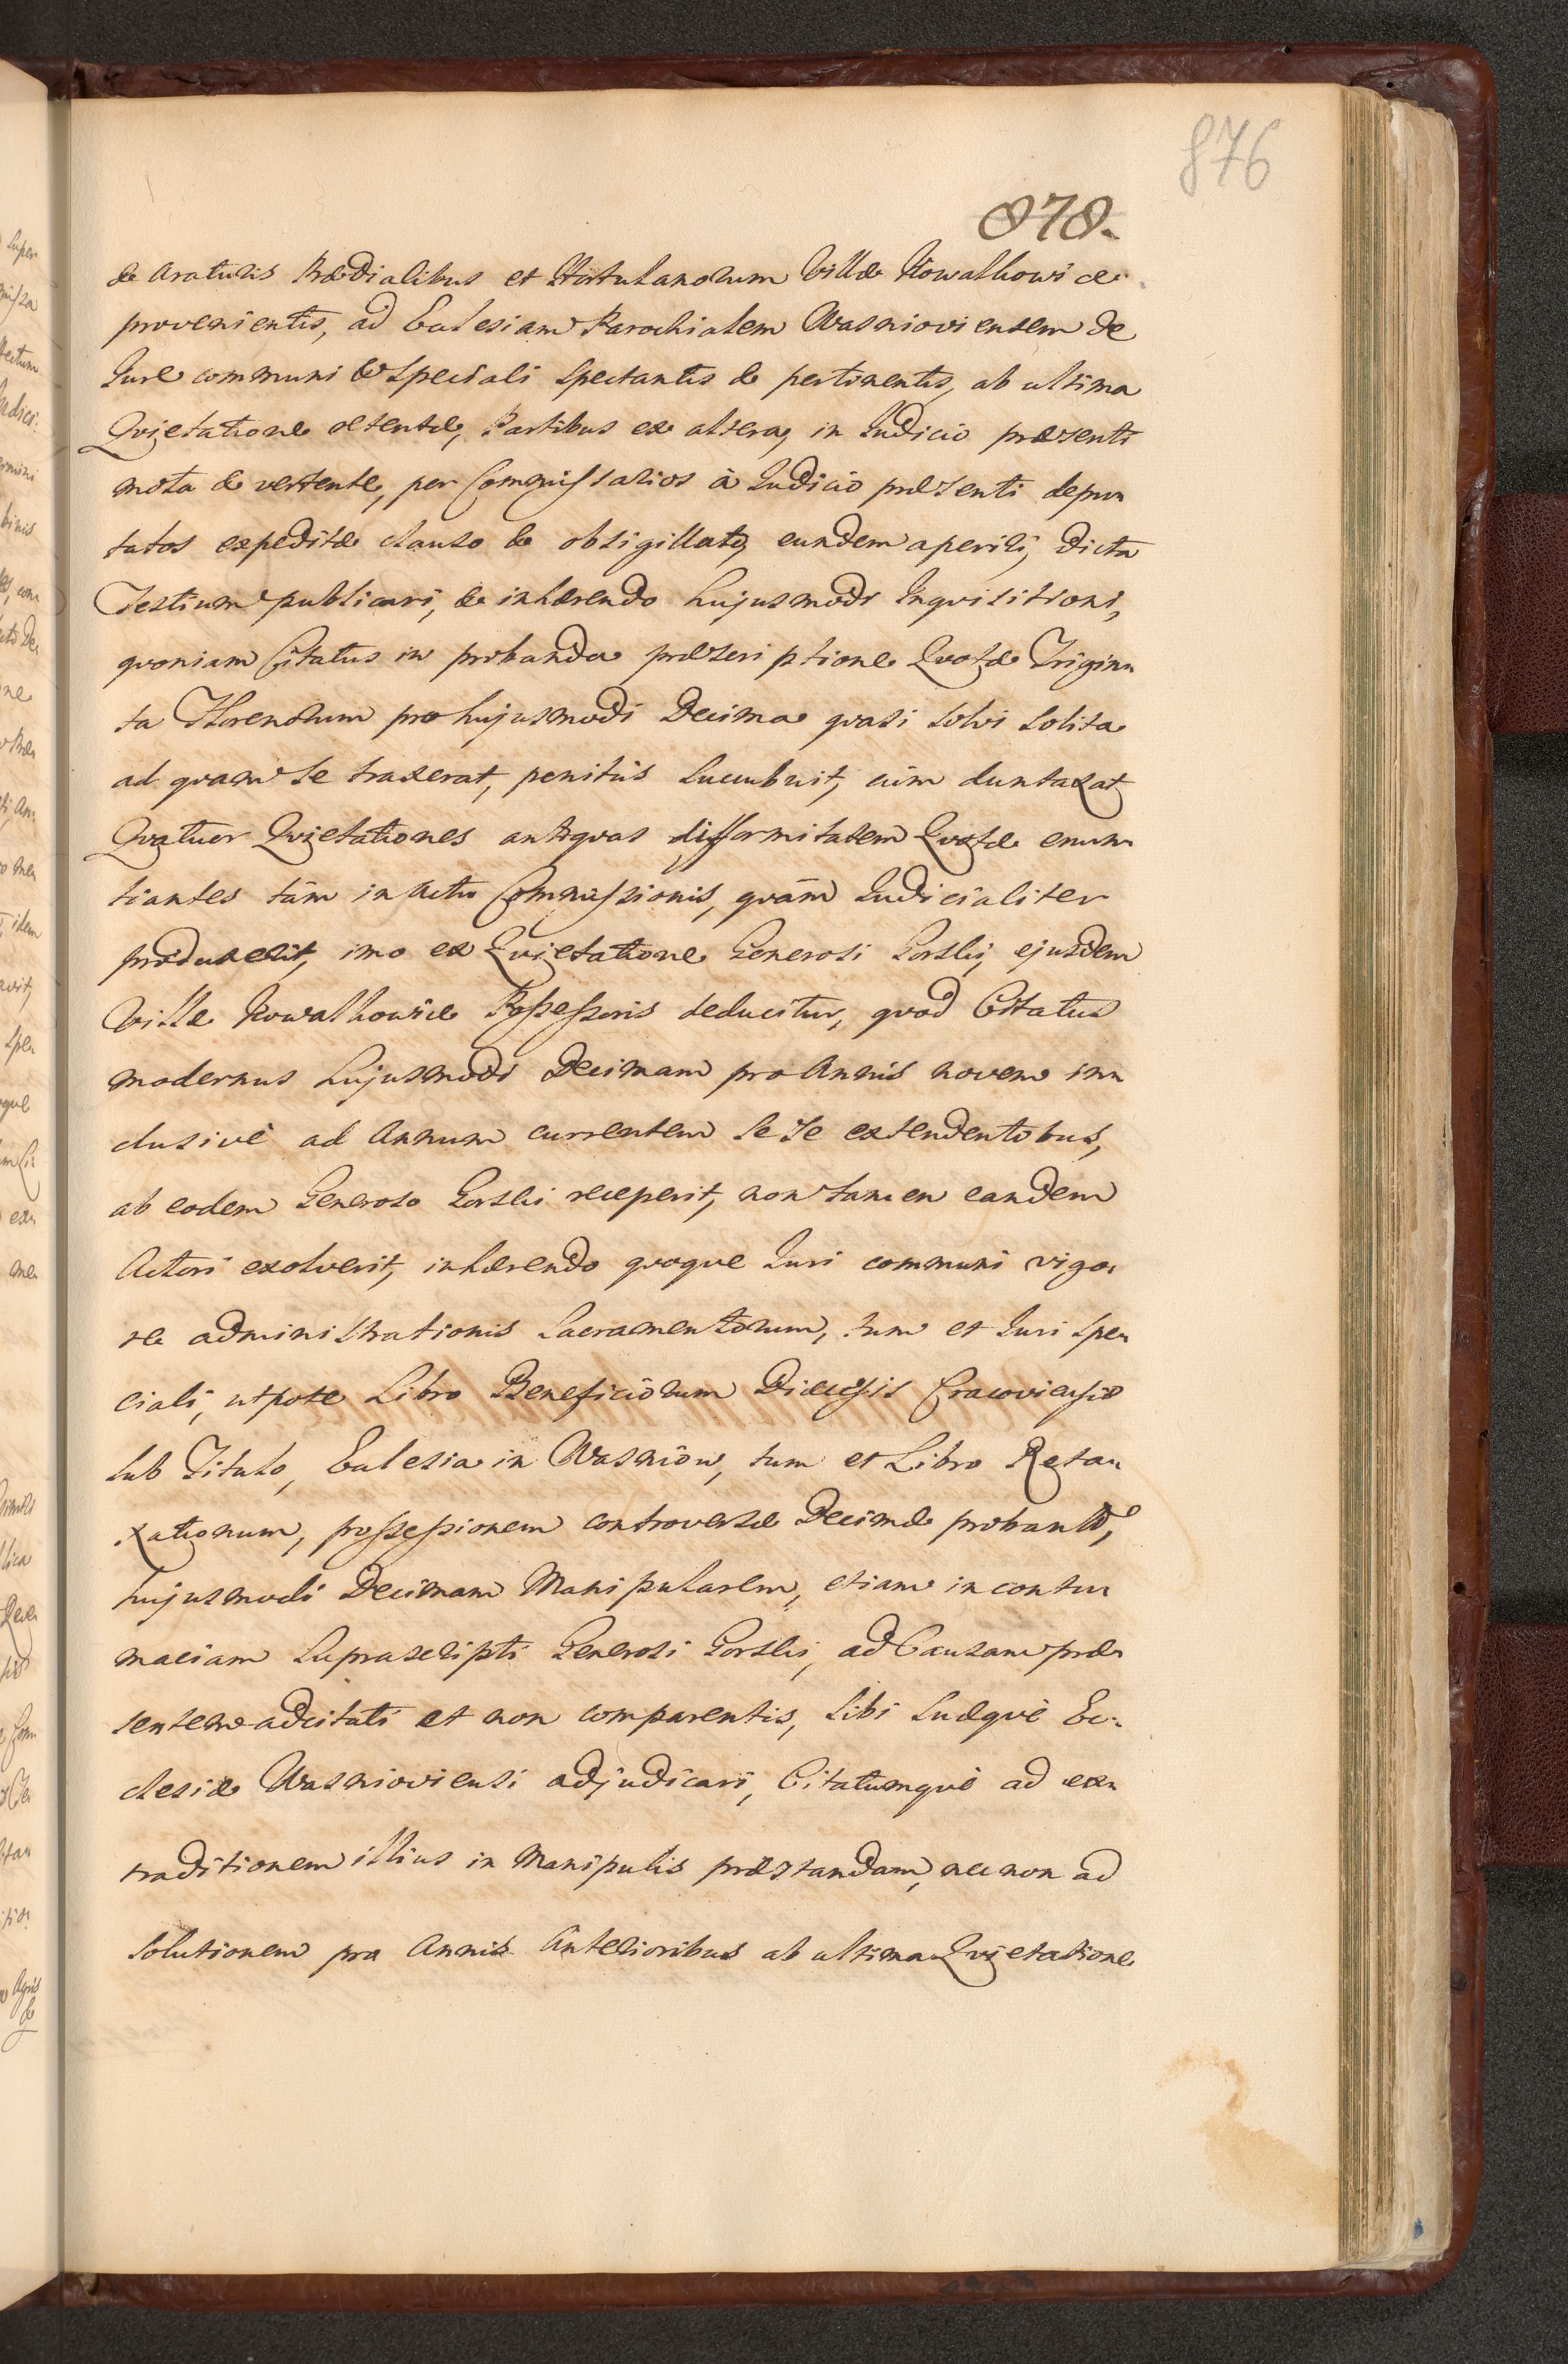 876
878.
de Araturis Prædialibus et Hortulanorum Villæ Kowalkowice
provenientis, ad Ecclesiam Parochialem Wasnioviensem de
Jure communi & Speciali spectantis & pertinentis, ab ultima
Qvietatione retentæ, Partibus ex altera, in Judicio præsenti
mota & vertente, per Commissarios à Judicio præsenti depu
tatos expeditæ clauso & obsigillato, eundem aperiri, dicta
Testium publicari, & inhærendo hujusmodi Inqvisitioni,
qvoniam Citatus in probanda præscriptione Qvotæ Trigin
ta Florenorum pro hujusmodi Decima qvasi solvi solita
ad qvam se traxerat, penitùs succubuit, cùm duntaxat
Qvatuor Qvietationes antiqvas difformitatem Qvotæ enun
tiantes tàm in Actu Commissionis, qvàm Judicialiter
produxerit, imo ex Qvietatione Generosi Gorski, ejusdem
Villæ Kowalkowice Possessoris deducitur, qvod Citatus
modernus hujusmodi Decimam pro Annis novem in
clusivè ad Annum currentem se se extendentibus,
ab eodem Generoso Gorski receperit, non tamen eandem
Actori exolverit, inhærendo qvoqve Juri communi vigo
re administrationis Sacramentorum, tum et Juri Spe
ciali, utpote Libro Beneficiorum Diæcesis Cracoviensis
sub Titulo, Ecclesia in Wasniow, tum et Libro Reta
xationum, possessionem controversæ Decimæ probanti,
hujusmodi Decimam Manipularem, etiam in contu
maciam suprascripti Generosi Gorski, ad Causam præ
sentem adcitati et non comparentis, sibi suæqve Ec
clesiæ Wasnioviensi adjudicari, Citatumqve ad ex
traditionem illius in Manipulis præstandam, nec non ad
solutionem pro Annis Anterioribus ab ultima Qvietatione